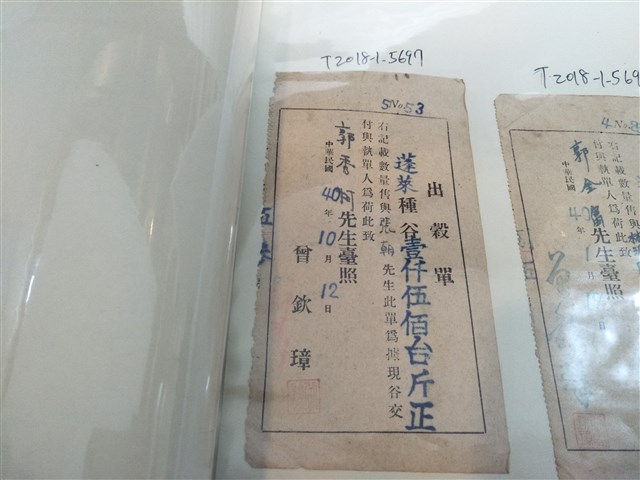 T2018-1-5697
5 No. 53
出穀單
蓬萊種谷壹仟伍佰台斤正
右記載數量售與張朝先生此單為據現谷交
付與執單人為荷此致
郭香柯先生臺照
中華民國40年10月12日
曾欽璋
T2018-1-569
4 No.
右記載數量售與
付與執單人為荷此致
郭金
先生臺照
中華民國40年1